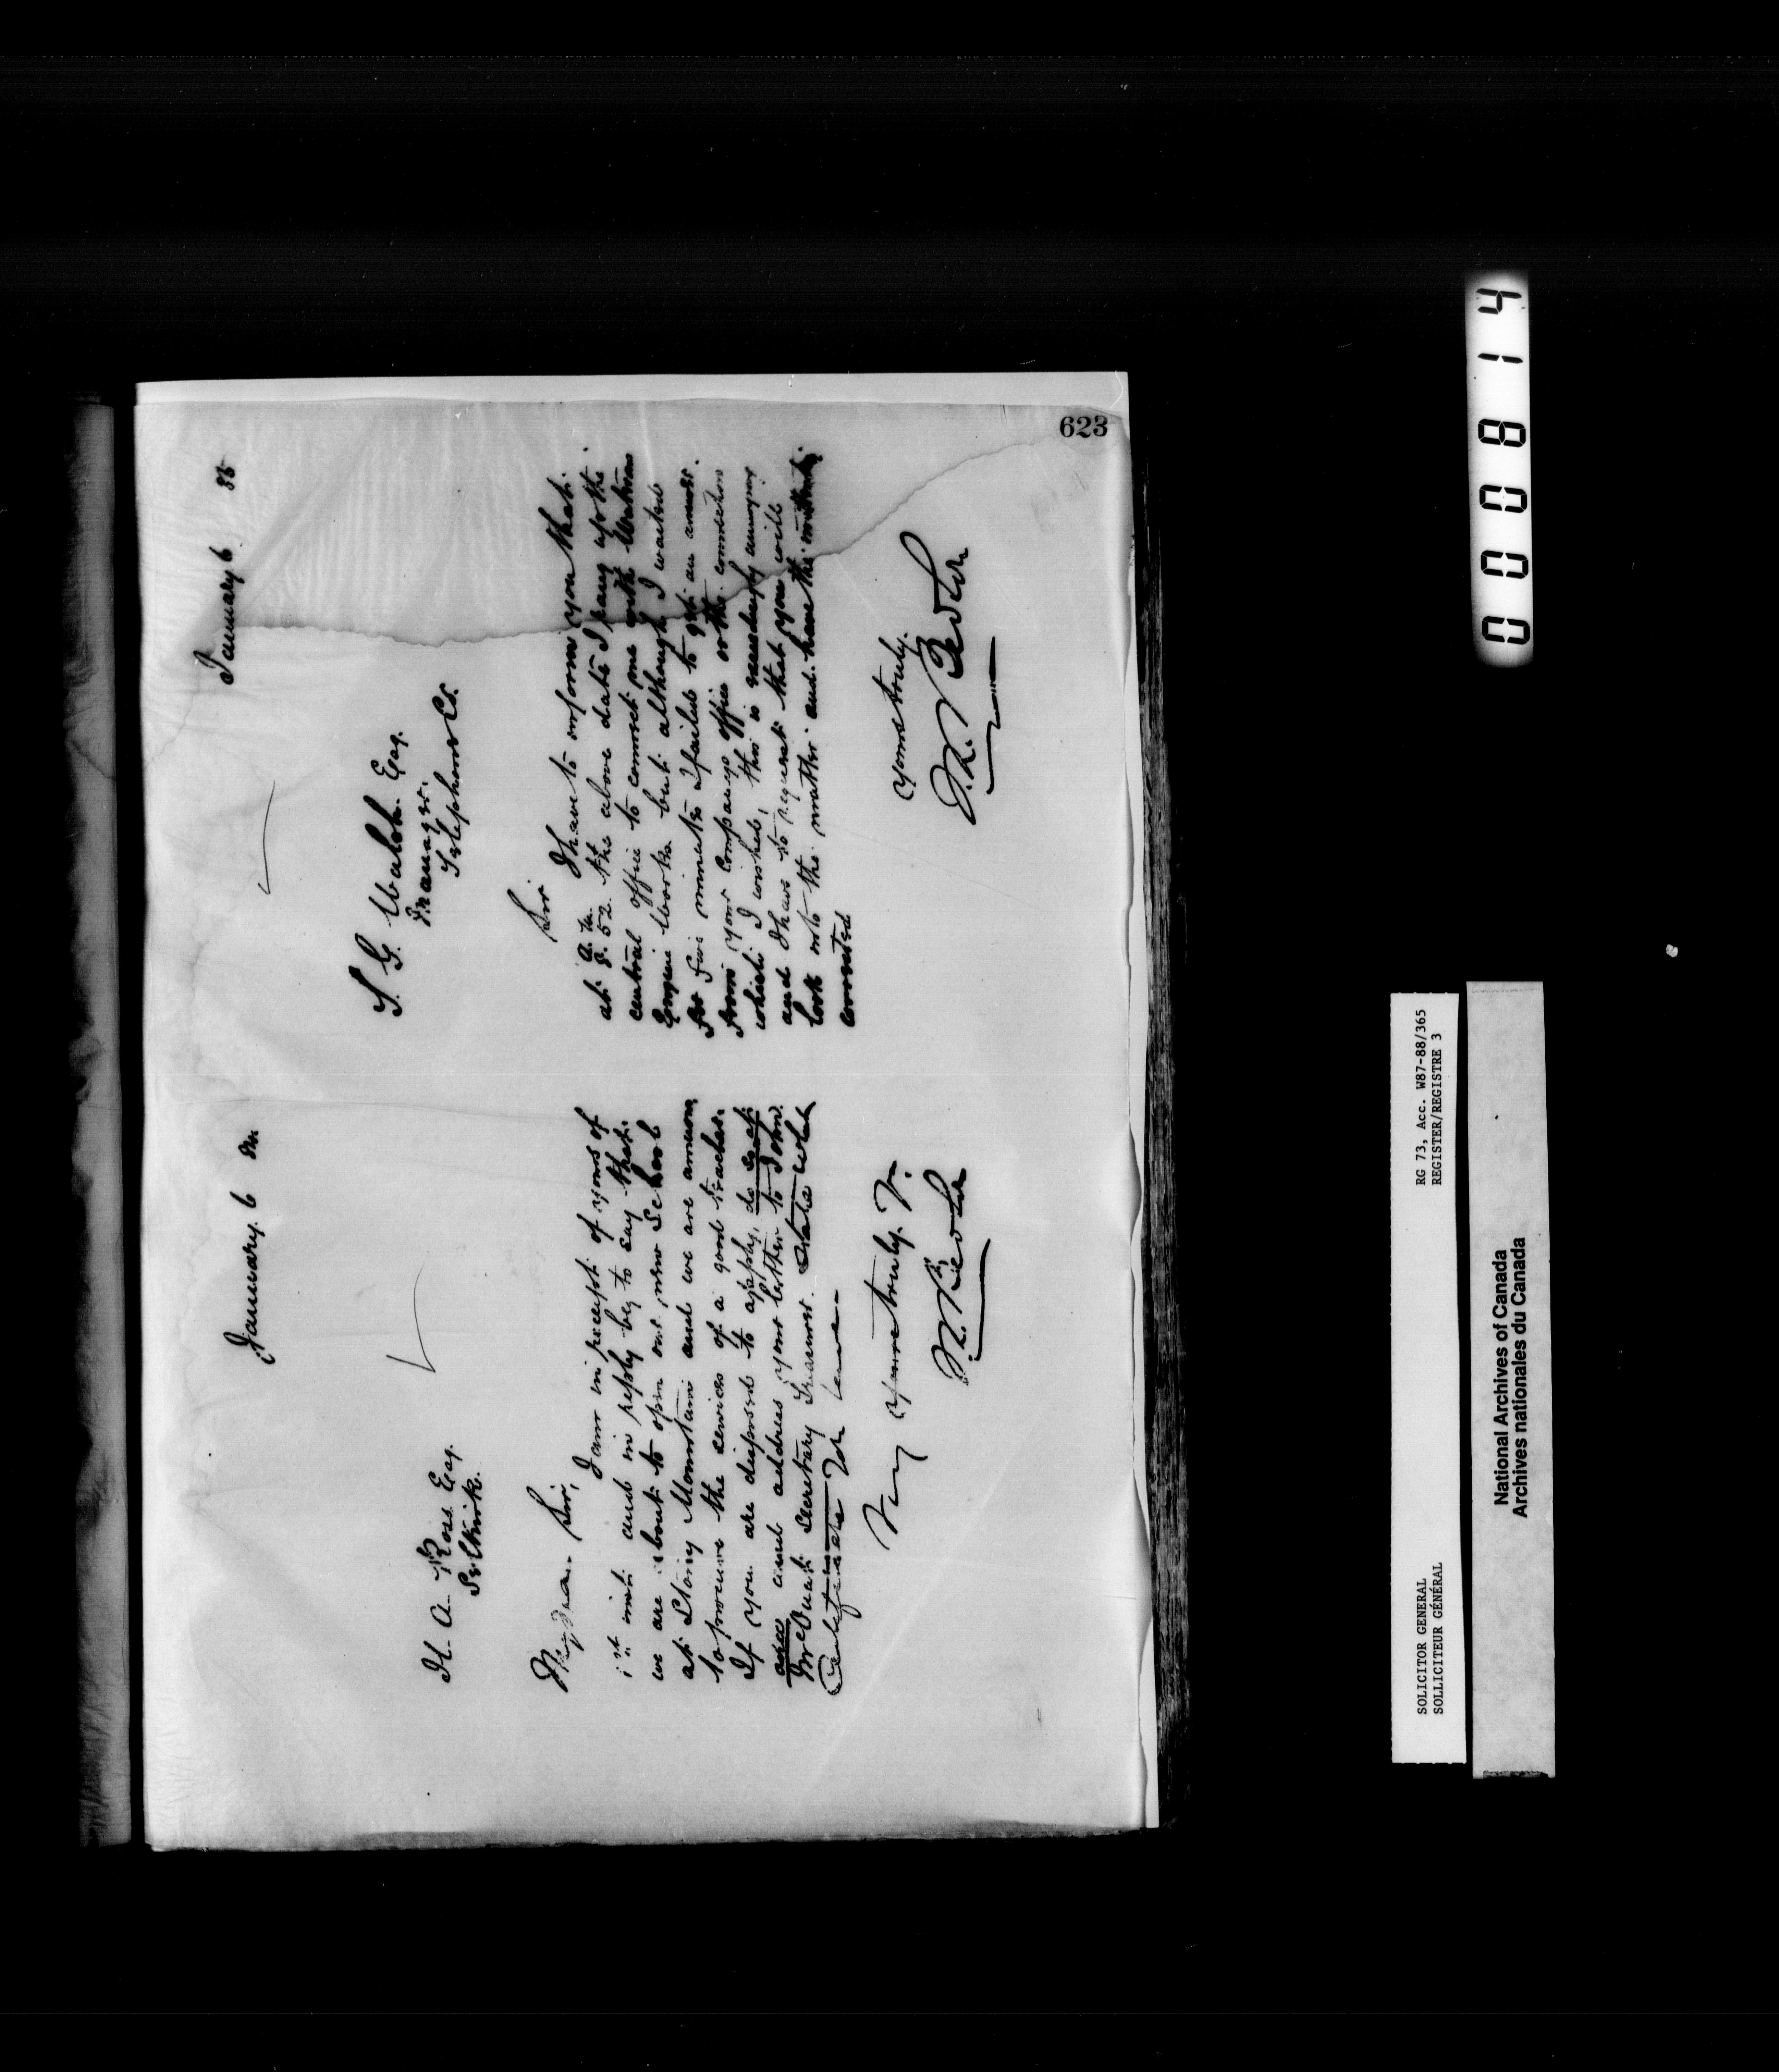 January 6
H. A. Ross Esq.
Selkirk.
My dear Sir,
I am in receipt of yours of
inst and in reply beg to say that
we are about to open our new School
at Stony Mountain and we are anxious
to procure the services of a good teacher.
If you are disposed to apply, do so at
once and address your letter to John
Secretary Treasurer. State what
Certificate you have
Very yours truly
January 6 85
S. G. Walsh Esq.
Manager
Telephone Co.
Sir
I have to inform you that
at 8.52 a.m. the above date I rang up the
central office to connect me with
Engine Works but although I waited
for five minutes I failed to get an answer
from your Companys office or the connection
which I wished, this is exceedingly annoying
and I have to request that you will
look into the matter and have the
corrected
yours truly
623
SOLICITOR GENERAL
SOLLICITEUR GÉNÉRAL
RG 73, Acc. W87-88/365
REGISTER/REGISTRE 3
National Archives of Canada
Archives nationales du Canada
000814